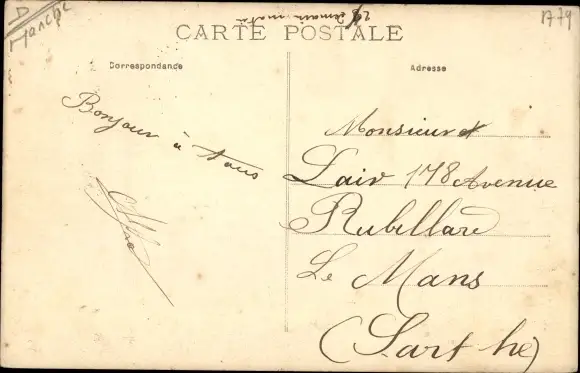 D
Manche
1779
demain matin
CARTE POSTALE
Correspondance
Adresse
Bonjour à tous
Monsieur et
Lair 178 Avenue
Rubillard
Le Mans
(Sarthe)